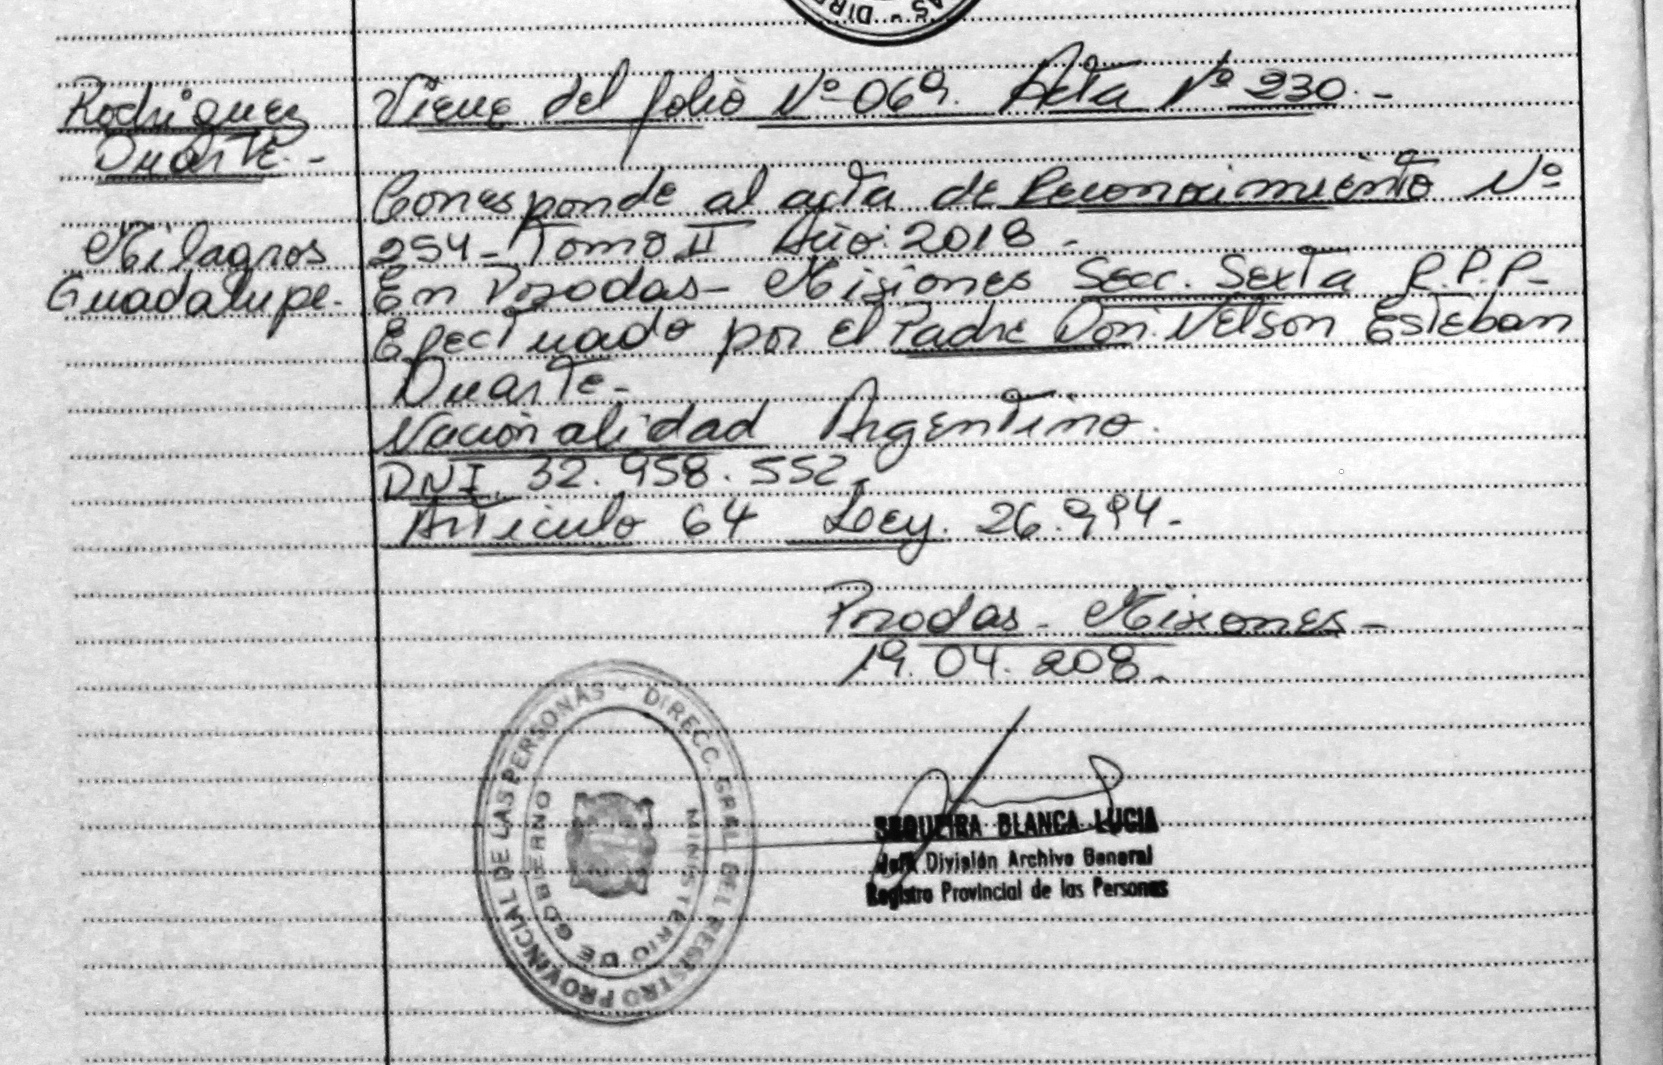 Rodriguez
Duarte.-
Milagros
Guadalupe.-
Viene del folio Nº 069. Acta Nº 230.-
Corresponde al acta de Reconocimiento Nº
254- Tomo II Año: 2018-
En Posadas- Misiones Secc. Sexta R.P.P-
Efectuado por el Padre Don: Nelson Esteban
Duarte-
Nacionalidad Argentino.
DNI. 32.958.552-
Articulo 64 Ley. 26.994-
Posadas- Misiones-
19.04.208-
DIRECC. GRAL. DEL REGISTRO PROVINCIAL DE LAS PERSONAS -
MINISTERIO DE GOBIERNO
SEQUEIRA BLANCA LUCIA
Jefa División Archivo General
Registro Provincial de las Personas